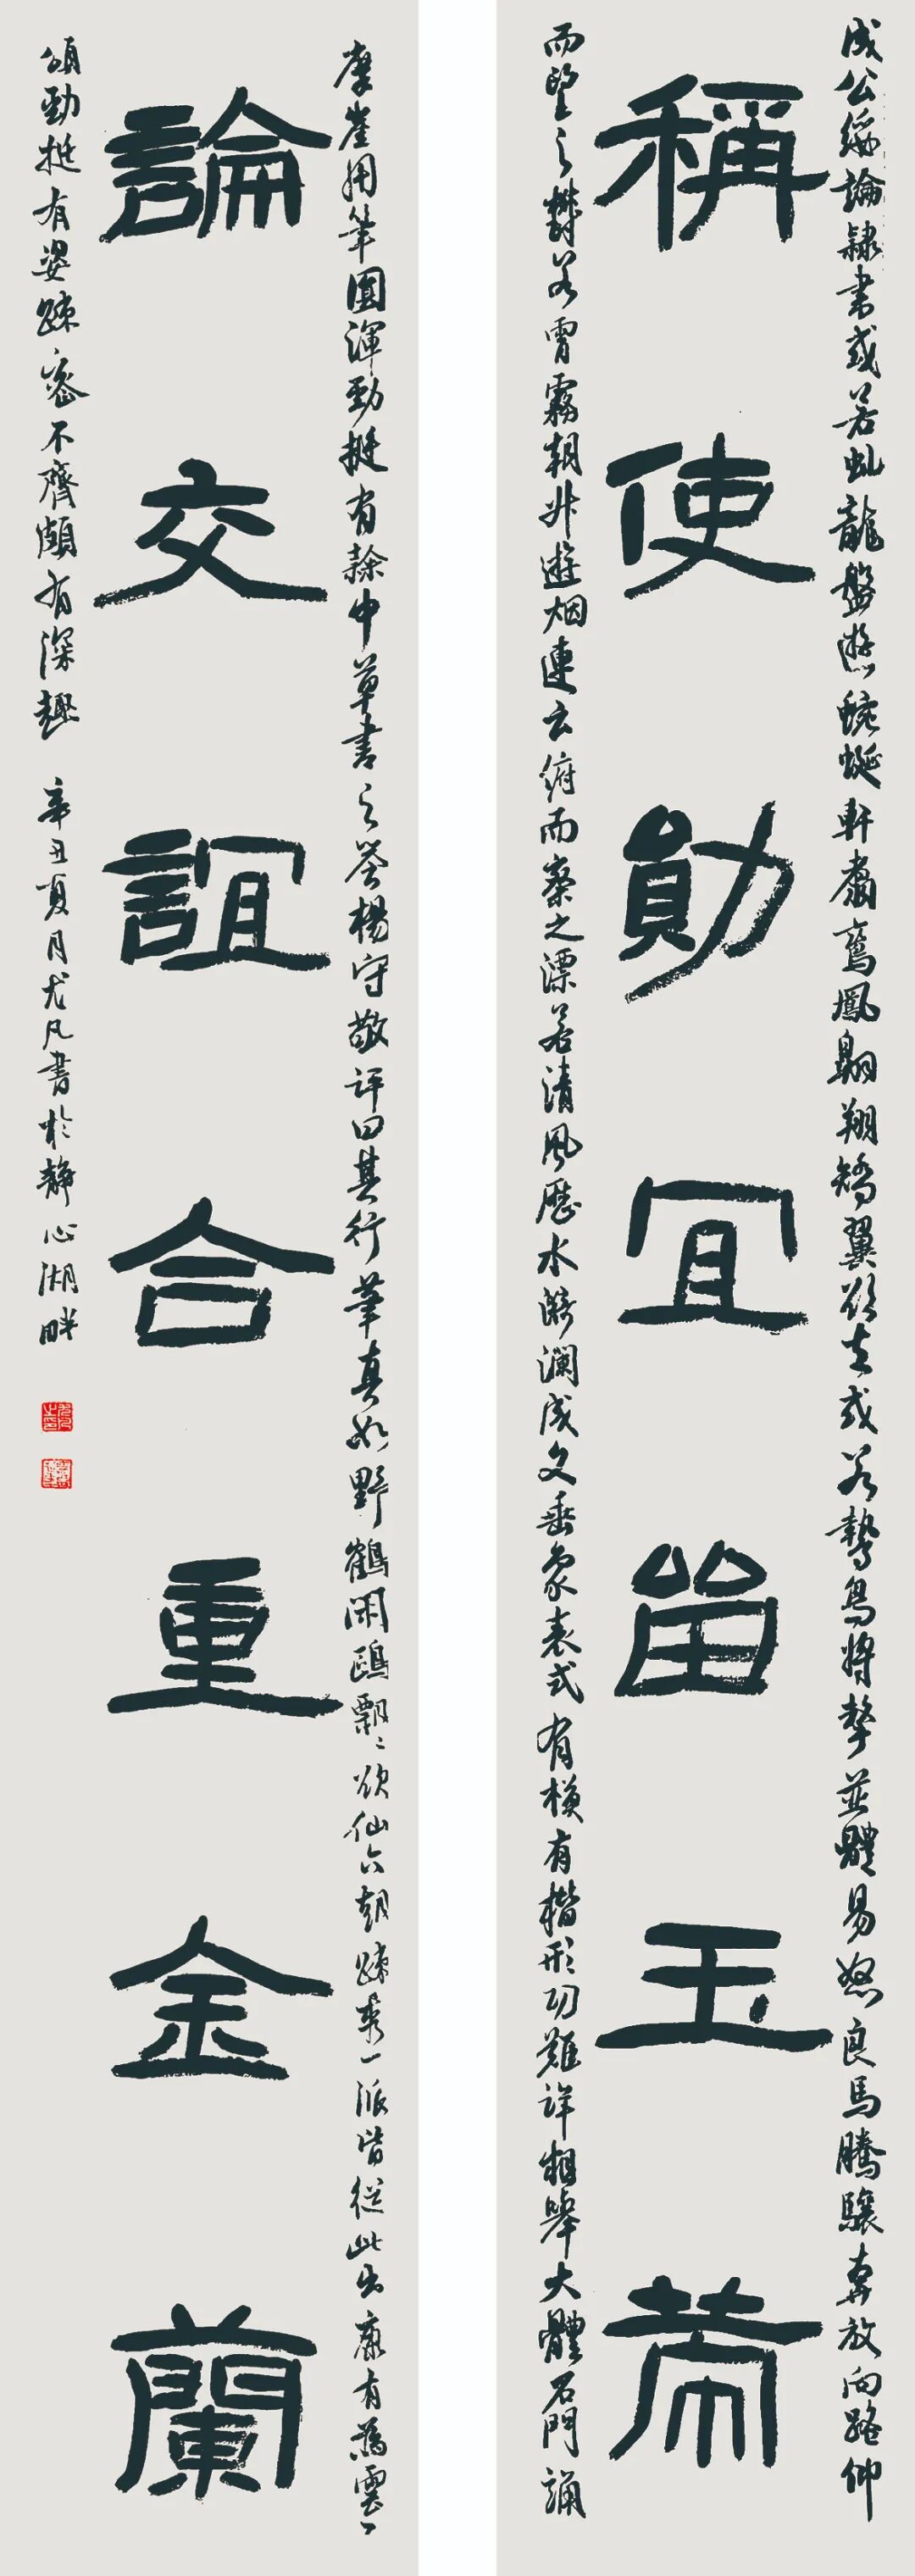 成公綏論隷書或若虬龍盤遊蜿蜒軒翥鸞鳳翱翔矯翼欲去或若鷙鳥將擊並體易怒良馬騰驤奔放向路仰
稱使勛宜留玉帶
而望之鬱若霄霧朝升遊烟連云俯而察之漂若清風歷水漪瀾成文垂象表式有模有楷形功難詳粗舉大體石門誦
摩崖用筆圓渾勁挺有隸中草書之譽楊守敬評曰其行筆真如野鶴閑鷗飄〻欲仙六朝疎秀一派皆從此出康有為雲一
論交誼合重金蘭
頌勁挺有姿疎密不齊頗有深趣 辛丑夏月尤凡書於靜心湖畔